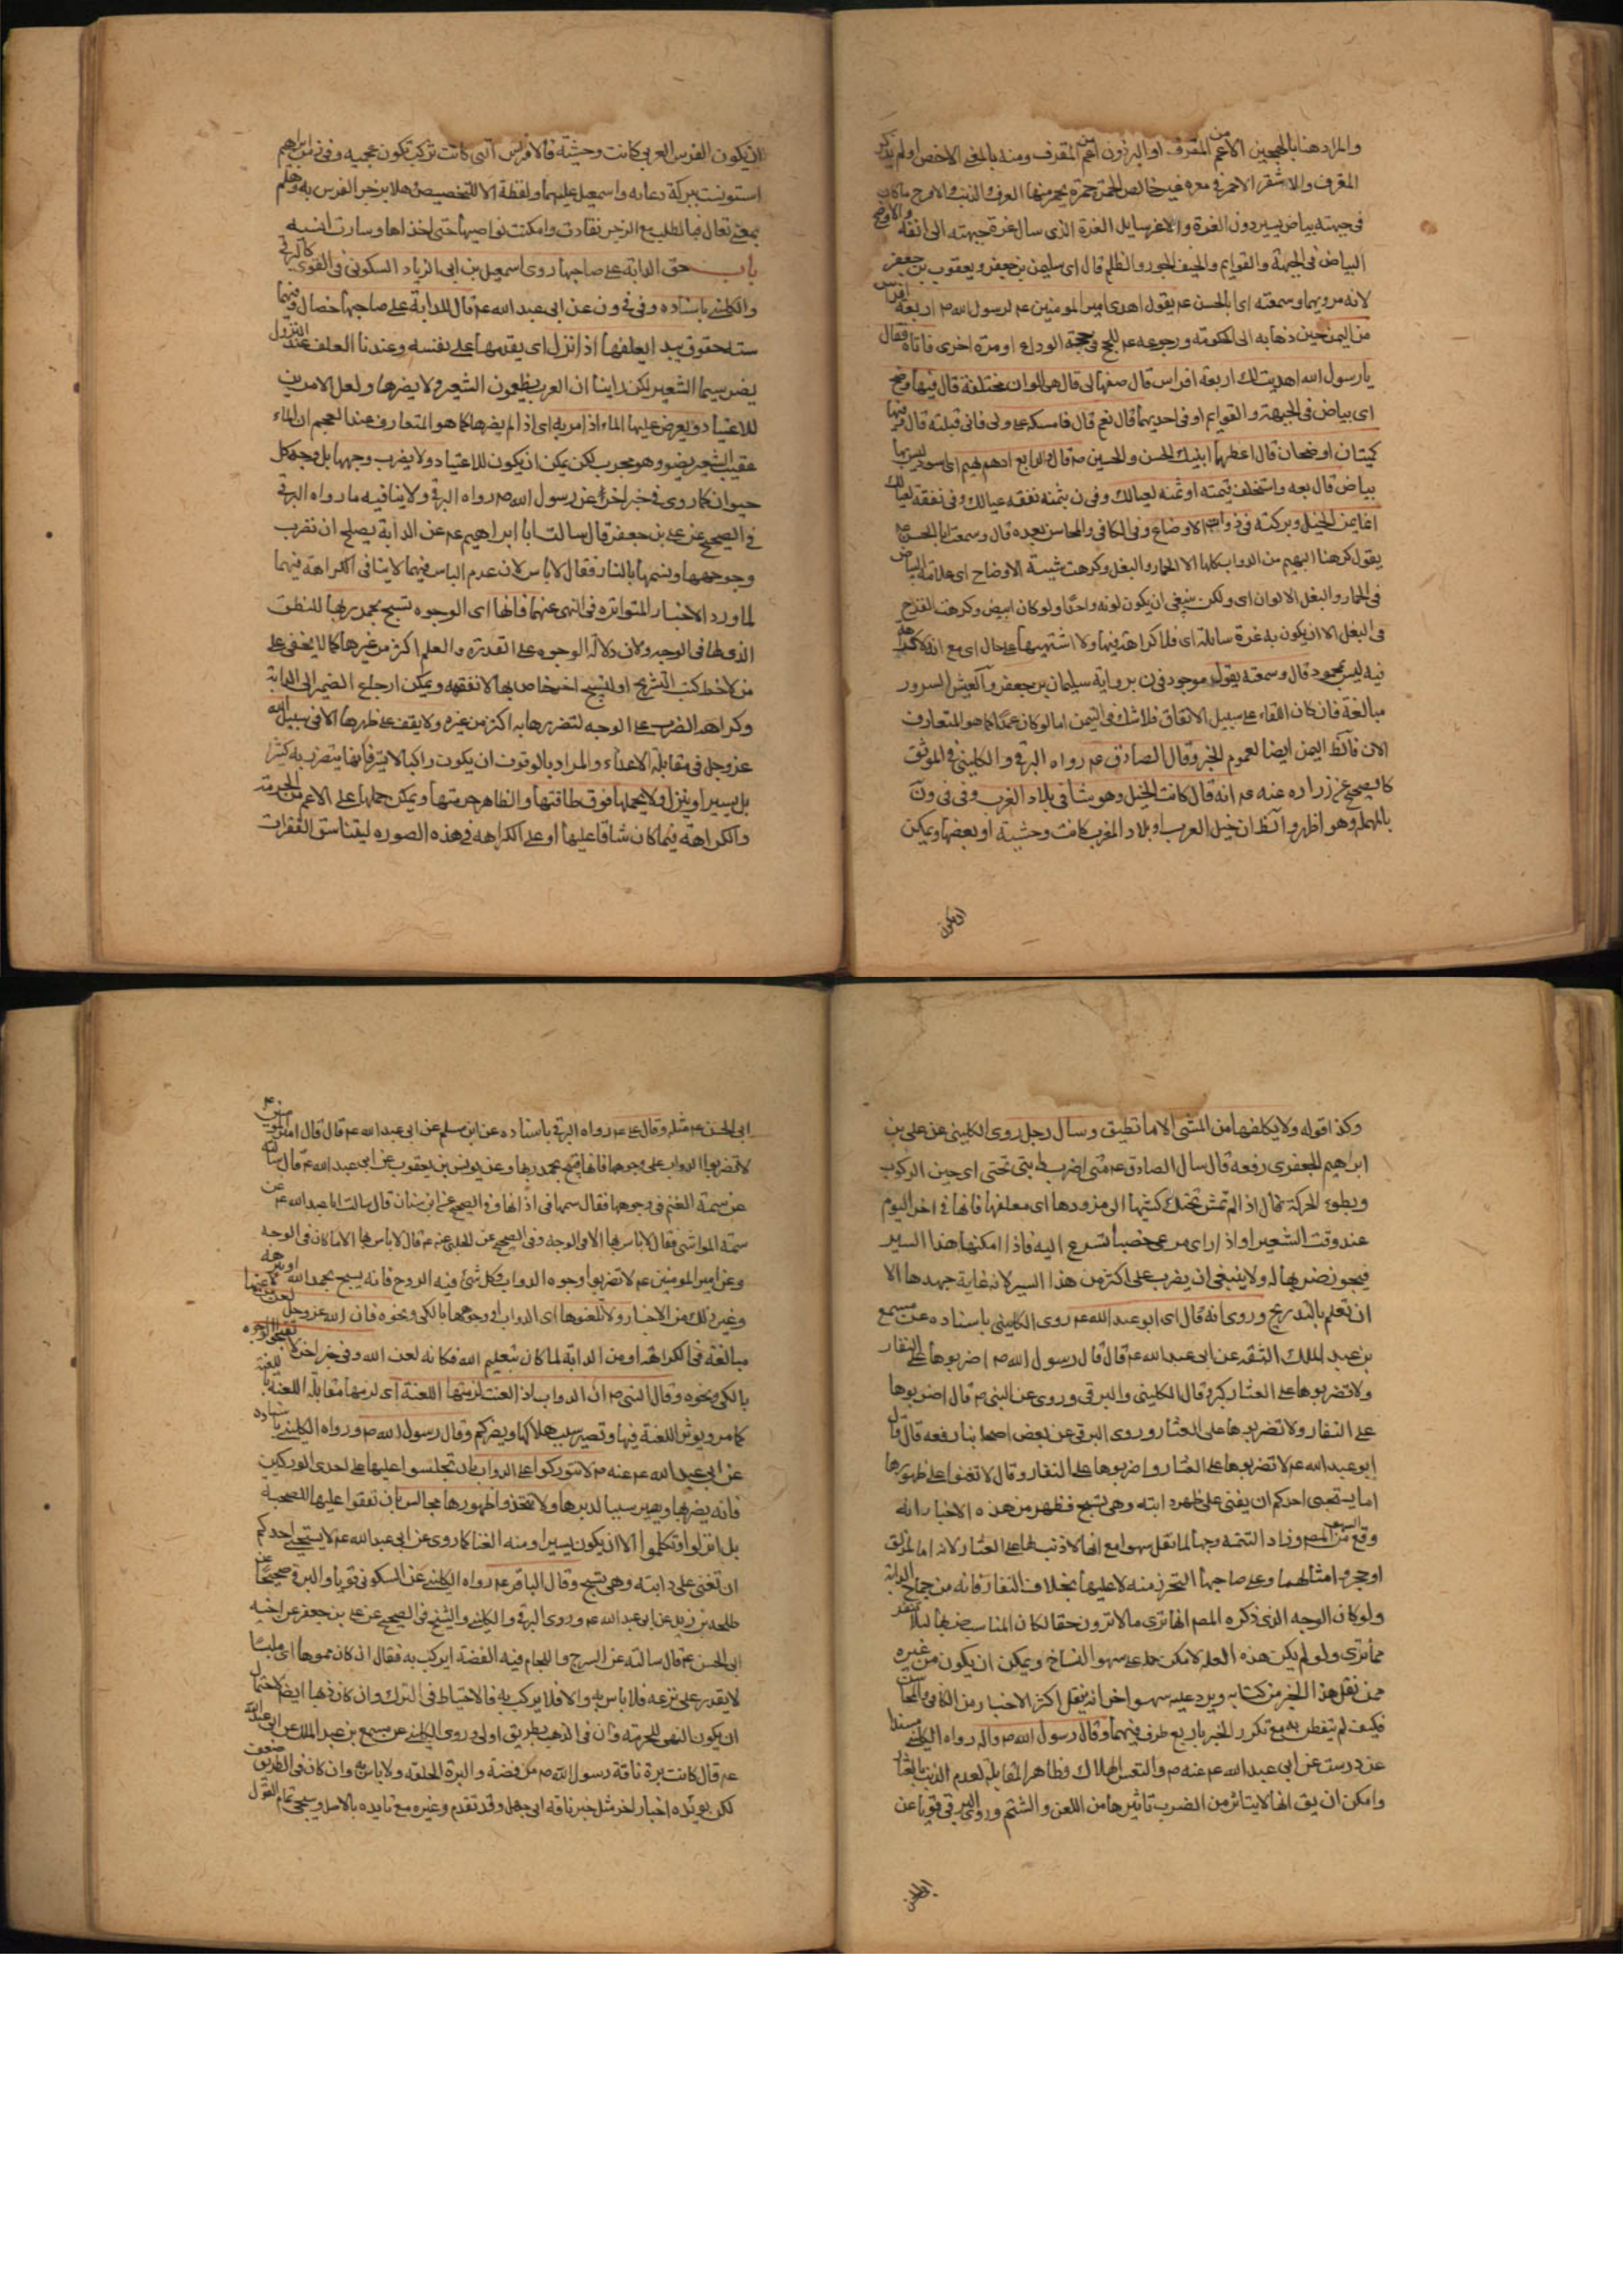 والمراد هنا بالهجين الاعم من المقرف او البرذون اعم من المقرف ومنه بالمعنى الاخص او لم يذكر
المقرف والاشقر الاحمر في مغره غير خالص الحمرة حمرة يحمر منها العرف والذنب والاقرح ما كان
في جبهته بياض يسير دون الغرة والاغر سايل الغرة الذي سال غرة جبهته الى انفه والاوضح
البياض في الجبهة والقوايم والحيف الجور والظلم قال اى سليمن بن جعفر ويعقوب بن جعفر
لانه مرويهما وسمعته اى ابا الحسن عم يقول اهدى امير المومنين عم لرسول الله ص اربعة افراس
من اليمن حين ذهابه الى الحكومة ورجوعه عم للحج في حجة الوداع او مرة اخرى فاتاه فقال
يا رسول الله اهديت لك اربعة افراس قال صفها لي قال هي الوان مختلفة قال فيها وضح
اى بياض في الجبهة والقوايم او في احديهما قال نعم قال فامسكه على ولى فانى قبلته قال فيها
كميتان اوضحان قال اعطهما ابنيك الحسن والحسين ص قال والرابع ادهم بهيم اى اسود ليس بها
بياض قال بعه واستخلف قيمته او ثمنه لعيالك وفى ن بثمنه نفقه عيالك وفى نفقة لعيالك
انما يمن الخيل وبركته في ذوات الاوضاح وفى الكافى والمحاسن بعده قال وسمعت ابا الحسن عم
يقول كرهنا البهيم من الدواب كلها الا الحمار والبغل وكرهت شية الاوضاح اى علامة البياض
في الحمار والبغل الالوان اى ولكن ينبغى ان يكون لونه واحدا ولو كان ابيض وكرهت القرح
في البغل الا ان يكون به غرة سايلة اى فلا كراهة فيها ولا اشتهيها على حال اى مع انه لا كراهة
فيه ليس بمحمود قال وسمعته يقول موجود في ن برواية سليمان بن جعفر والعيش السرور
مبالغة فان كان اللقاء على سبيل الاتفاق فلا شك في اليمن اما لو كان عمدا كما هو المتعارف
الان فالظ اليمن ايضا لعموم الخبر وقال الصادق عم رواه البرقى والكلينى في الموثق
كالصحيح عن زراره عنه عم انه قال كانت الخيل وحوشا في بلاد العرب وفى في ون
بالمهملة وهو اظهر والظ ان خيل العرب او بلاد المغرب كانت وحشية او بعضها ويمكن
ان يكون
ان يكون الفرس العربى كانت وحشية فالافراس التى كانت تركب تكون عجمية وفى زمن ابراهيم
استونست ببركة دعائه واسمعيل عليهما ولفظة الا للتخصيص وهلا يزجر الفرس به وهلم
بمعنى تعال فبالطلب مع الزجر نقادت وامكنت نواصيها حتى اخذاها وسارت انسيه
باب حق الدابة على صاحبها روى اسمعيل بن ابى الزياد السكونى في القوى كالبرقى
والكلينى باسناده وفى في ون عن ابى عبد الله عم قال للدابة على صاحبها خصال وفيهما
ستة حقوق يبدا يعلفها اذا نزل اى يقدمها على نفسه وعندنا العلف عند النزول
يضر سيما الشعير لكن راينا ان العرب يطعمون الشعير ولا يضرها ولعل الامرين
للاعتياد ويعرض عليها الماء اذا مر به اى اذا لم يضرها كما هو المتعارف عند العجم ان الماء
عقيب الشعير يضر وهو مجرب لكن يمكن ان يكون للاعتياد ولا يضرب وجهها بل وجه كل
حيوان كما روى في خبر اخر عن رسول الله ص رواه البرقى ولا ينافيه ما رواه البرقى
في الصحيح عن على بن جعفر قال سالت ابا ابراهيم عم عن الدابة يصلح ان تضرب
وجوهها وتسمها بالنار فقال لا باس لان عدم الباس فيهما لا ينافى الكراهة فيهما
لما ورد الاخبار المتواتره في النهى عنهما فانها اى الوجوه تسبح بحمد ربها للنطق
الذى لها في الوجه ولان دلالة الوجوه على القدرة والعلم اكثر من غيرها كما لا يخفى على
من لاحظ كتب التشريح او لتسبيح اخر خاص لها لا نفقهه ويمكن ارجاع الضمير الى الدابة
وكراهة الضرب على الوجه لتضررها به اكثر من غيره ولا يقف على ظهرها الا في سبيل الله
عز وجل في مقابلة الاعداء والمراد بالوقوف ان يكون راكبا لا يترفانها يتضرر به كثيرا
بل يسير او ينزل ولا يحملها فوق طاقتها والظاهر حرمتها ويمكن حملها على الاعم من الحرمة
والكراهة فيما كان شاقا عليها او على الكراهه في هذه الصوره ليتناسق الفقرات
وكذا قوله ولا يكلفها من المشى الا ما تطيق وسال رجل روى الكلينى عن على بن
ابراهيم الجعفرى رفعه قال سال الصادق عم متى اضرب دابتى تحتى اى حين الركوب
وبطوء الحركة قال اذا لم تمش تحتك كمشيها الى مزودها اى معلفها فانها في اخر اليوم
عند وقت الشعير او اذا راى مرعى خصبا تسرع اليه فاذا امكنها هذا السير
فيجوز ضربها له ولا ينبغى ان يضرب على اكثر من هذا السير لانه غاية جهدها الا
ان تعلم بالتدريج وروى انه قال اى ابو عبد الله عم روى الكلينى باسناده عن مسمع
بن عبد الملك الثقه عن ابى عبد الله عم قال قال رسول الله ص اضربوها على النفار
ولا تضربوها على العثار كبره قال الكلينى والبرقى وروى عن النبى ص قال اضربوها
على النفار ولا تضربوها على العثار وروى البرقى عن بعض اصحابنا رفعه قال قال
ابو عبد الله عم لا تضربوها على العثار واضربوها على النفار وقال لا تغنوا على ظهورها
اما يستحيى احدكم ان يغنى على ظهر دابته وهى تسبح فظهر من هذه الاخبار انه
وقع من المصنف السهو وزاد التتمة وجها لما نقل سهوا مع انها لا ذنب لها على العثار لانه اما لمزلق
او حجر وامثالهما وعلى صاحبها التحرز منه لا عليها بخلاف النفار فانه من جماح الدابة
ولو كان الوجه الذى ذكره المصم انها ترى ما لا ترون حقا لكان المناسب ضربها لئلا تنفر
مما ترى ولو لم يكن هذه العله لامكن حمله على سهو النساخ ويمكن ان يكون من غيره
ممن نقل هذا الخبر من كتابه ويرد عليه سهو اخر انه ينقل اكثر الاخبار من الكافى والمحاسن
فكيف لم يتفطن به مع تكرر الخبر باربع طرف فيهما وقال رسول الله ص واله رواه الكلينى مسندا
عن درست عن ابى عبد الله عم عنه ص والتعس الهلاك وظاهر المقابلة لعدم الذنب بالعثار
وامكن ان يق انها لا يتاثر من الضرب تاثيرها من اللعن والشتم وروى البرقى قويا عن
ابى الحسن
ابى الحسن عم مثله وقال على عم رواه البرقى باسناده عن ابن مسلم عن ابى عبد الله عم قال قال امير المومنين عم
لا تضربوا الدواب على وجوهها فانها تسبح بحمد ربها وعن يونس بن يعقوب عن ابى عبد الله عم قال سالته
عن سمة الغنم في وجوهها فقال سمها في اذانها وفى الصحيح عن ابن سنان قال سالت ابا عبد الله عم عن
سمة المواشى فقال لا باس بها الا في الوجه وفى الصحيح عن الحلبى عنه عم قال لا باس بها الا ما كان في الوجه
وعن امير المومنين عم لا تضربوا وجوه الدواب وكل شئ فيه الروح فانه يسبح بحمد الله
وغير ذلك من الاخبار ولا تلعنوها اى الدواب او وجوهها بالكى ونحوه فان الله عز وجل لعن لاعنها
مبالغة في الكراهة او من الدابة لما كان بتعليم الله فكانه لعن الله وفى خبر اخر لا تقبحوا الوجوه
بالكى ونحوه وقال النبى ص ان الدواب اذا لعنت لزمتها اللعنة اى لزمها مقابلة اللعنة باللعنة
كما مر ويوثر اللعنة فيها وتصير سبب هلاكها ويضركم وقال رسول الله ص ورواه الكلينى باسناده
عن ابى عبد الله عم عنه ص لا تتوركوا على الدواب بان تجلسوا عليها على احدى الوركين
فانه يضرها ويصير سببا لدبرها ولا تتخذوا ظهورها مجالس بان تقفوا عليها للصحبة
بل انزلوا وتكلموا الا ان يكون يسيرا ومنه الغنا كما روى عن ابى عبد الله عم لا يستحيى احدكم
ان تغنى على دابته وهى تسبح وقال الباقر عم رواه الكلينى عن السكونى قويا والبرقى صحيحا عن
طلحة بن زيد عن ابى عبد الله عم وروى البرقى والكلينى والشيخ في الصحيح عن على بن جعفر عن اخيه
ابى الحسن عم قال سالته عن السرج واللجام فيه الفضة ايركب به فقال ان كان مموها اى ملبسا
لا يقدر على نزعه فلا باس به والا فلا يركب به فالاحتياط في الترك وان كان ذهبا ايضا لاحتمال
ان يكون النهى للحرمة وان في الذهب بطريق اولى وروى الكلينى عن مسمع بن عبد الملك عن ابى عبد الله
عم قال كانت برة ناقة رسول الله ص من فضة والبرة الحلقه ولا باس به وان كان في الطريق ضعف
لكن يويده اخبار اخر مثل خبر ناقه ابى جهل وقد تقدم وغيره مع تايده بالاصل وسيجئ تمام القول